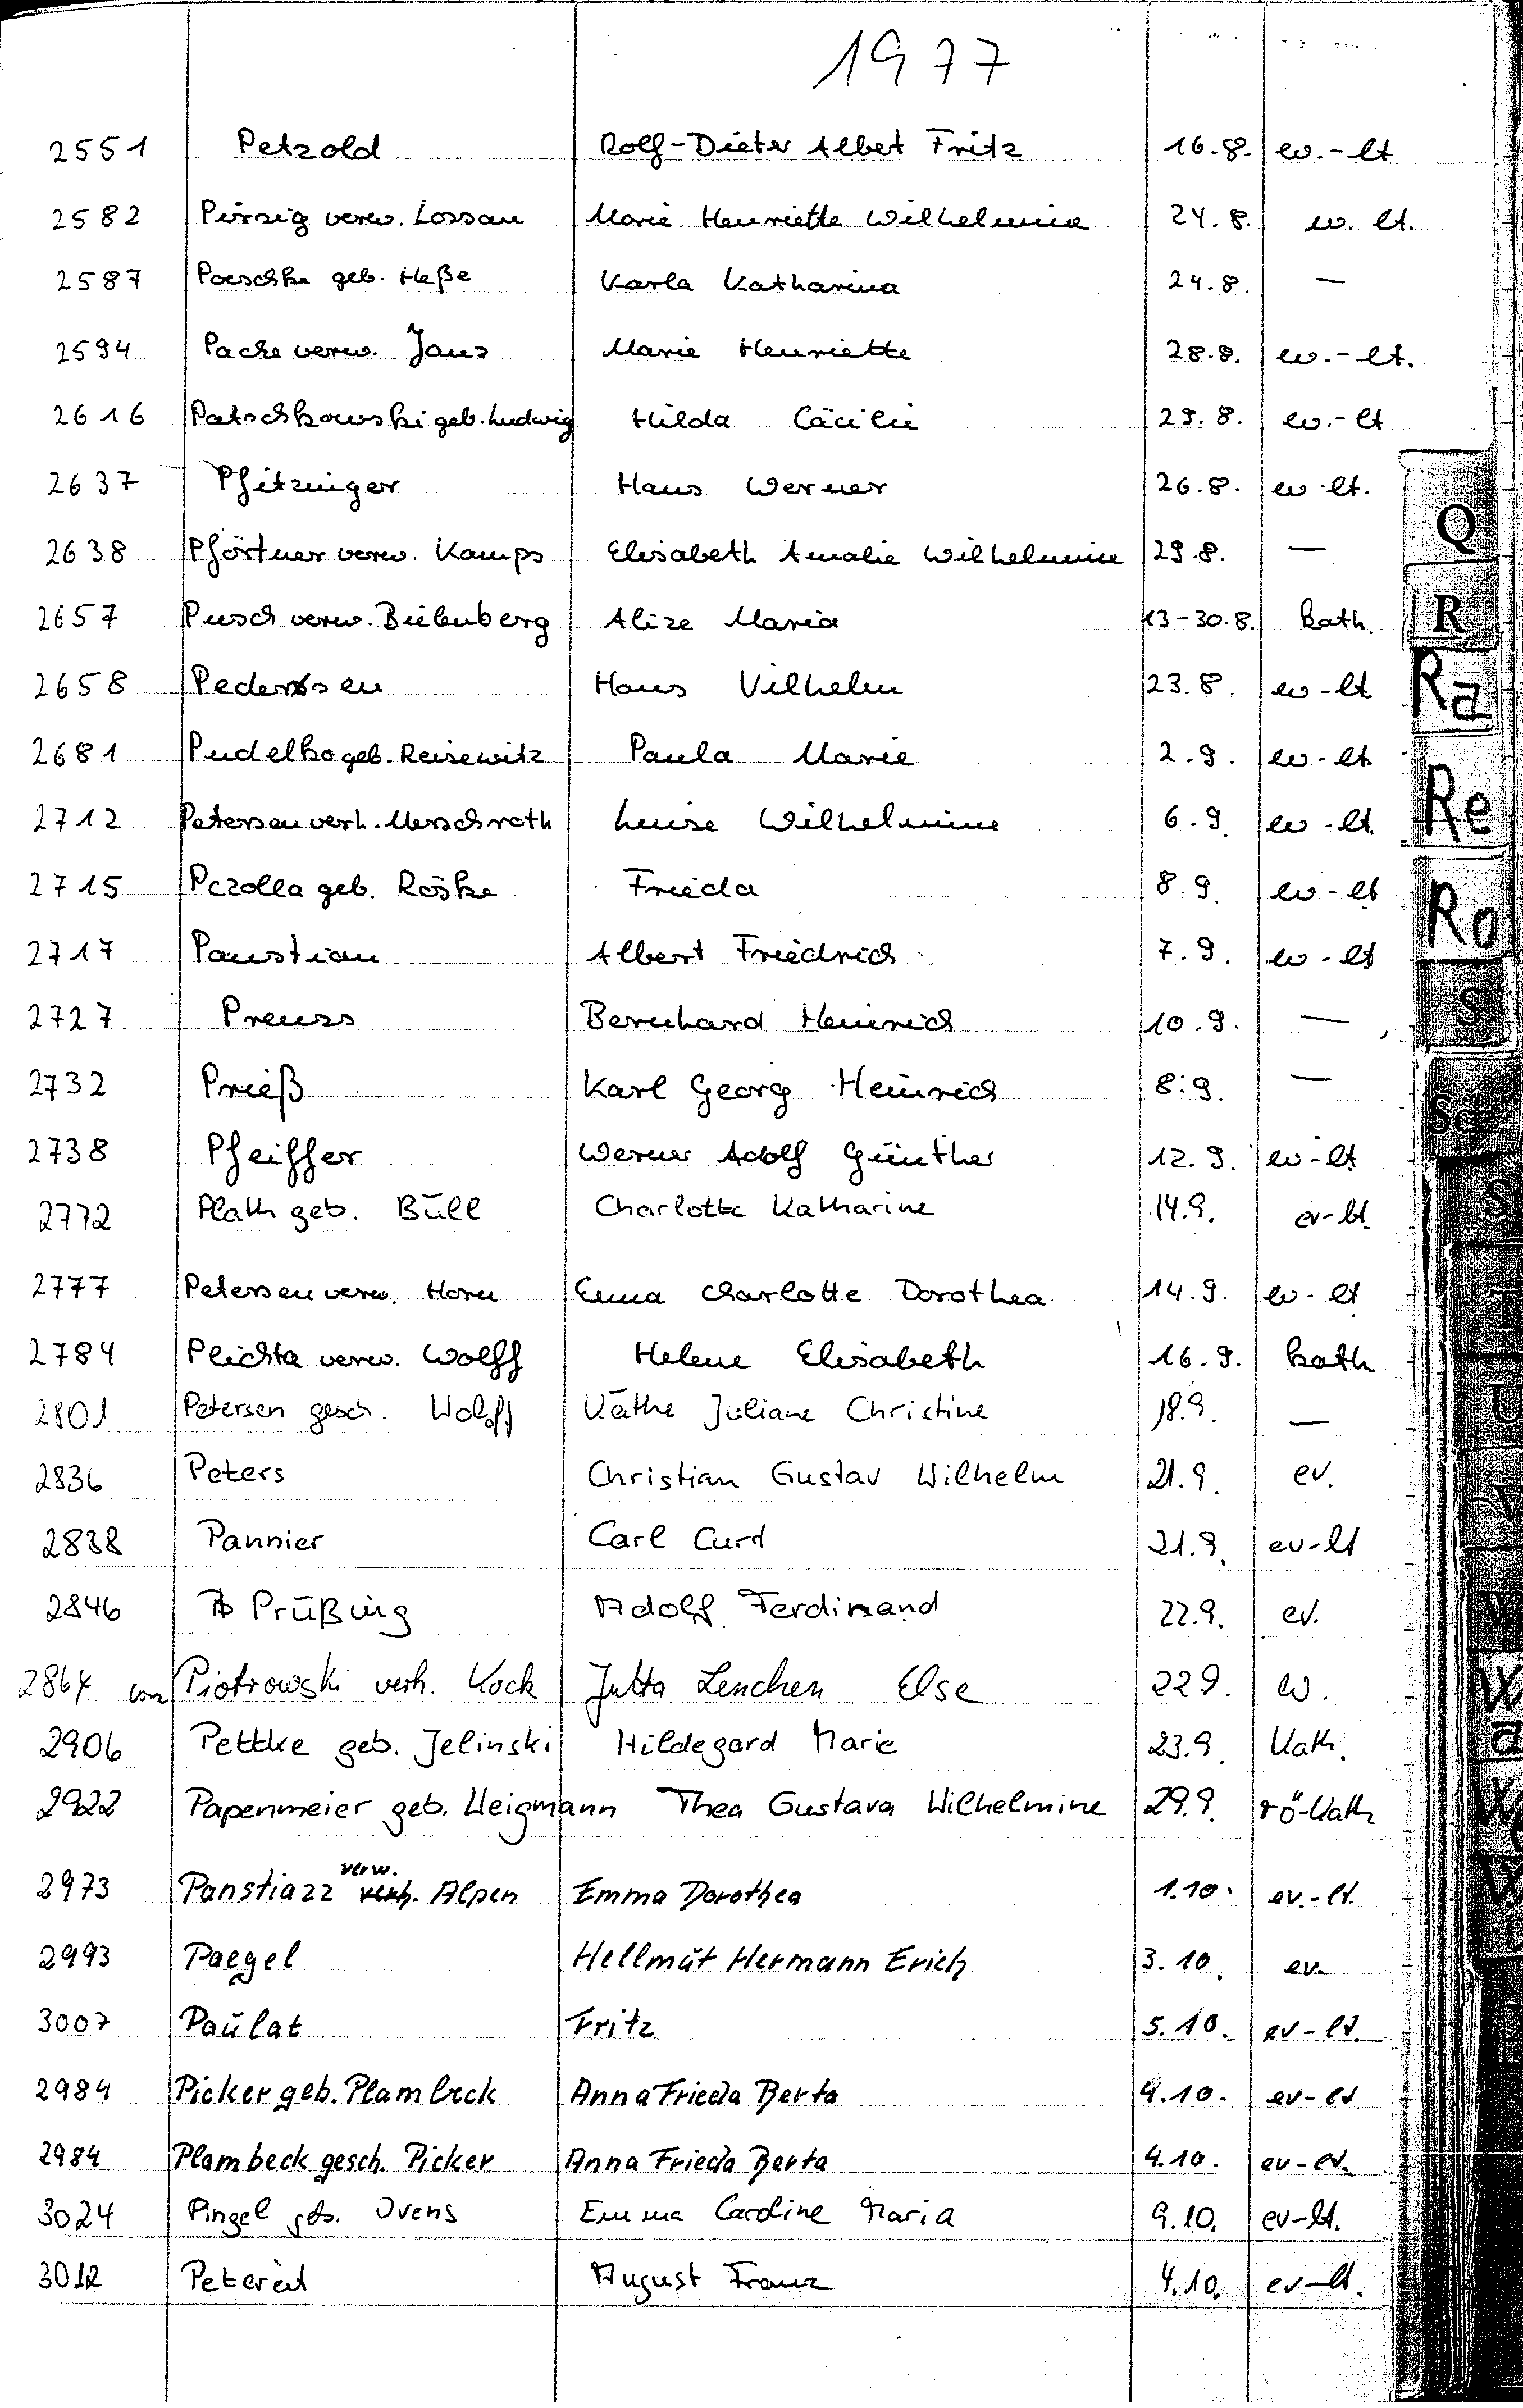 1977
2551 Petzold Rolf-Dieter Albert Fritz 16.8. ev.-lt
2582 Pirsig verw. Lossau Marie Henriette Wilhelmine 24.8. ev. lt.
2587 Poeschke geb. Heße Karla Katharina 24.8. —
2594 Pache verw. Janz Marie Henriette 28.8. ev.-lt.
2616 Patschkowski geb. Ludwig Hilda Cäcilie 29.8. ev.-lt
2637 Pfitzinger Hans Werner 26.8. ev-lt.
2638 Pförtner verw. Kamps Elisabeth Amalie Wilhelmine 29.8. —
2657 Pusch verw. Bielenberg Alize Maria 13-30.8. kath.
2658 Pedersen Hans Vilhelm 23.8. ev-lt
2681 Pudelko geb. Reisewitz Paula Marie 2.9. ev-lt
2712 Petersen verh. Merschroth Luise Wilhelmine 6.9. ev-lt.
2715 Pczolla geb. Röske Frieda 8.9. ev-lt
2717 Paustian Albert Friedrich 7.9. ev-lt
2727 Preuss Bernhard Heinrich 10.9. —
2732 Prieß Karl Georg Heinrich 8.9. —
2738 Pfeiffer Werner Adolf Günther 12.9. ev-lt
2772 Plath geb. Büll Charlotte Katharine 14.9. ev-lt.
2777 Petersen verw. Horn Emma Charlotte Dorothea 14.9. ev-lt
2784 Plichta verw. Wolff Helene Elisabeth 16.9. kath
2801 Petersen gesch. Wolff Käthe Juliane Christine 18.9. —
2836 Peters Christian Gustav Wilhelm 21.9. ev.
2838 Pannier Carl Curd 21.9. ev-lt
2846 Prüßing Adolf Ferdinand 22.9. ev.
2864 von Piotrowski verh. Kock Jutta Lenchen Else 22.9. ev.
2906 Pettke geb. Jelinski Hildegard Marie 23.9. Kath.
2922 Papenmeier geb. Weigmann Thea Gustava Wilhelmine 29.9. rö-Kath
verw.
2973 Panstiazz verh. Alpen Emma Dorothea 1.10. ev.-lt.
2993 Paegel Hellmut Hermann Erich 3.10. ev.
3007 Paulat Fritz 5.10. ev-lt.
2984 Picker geb. Plambeck Anna Frieda Berta 4.10. ev-lt
2984 Plambeck gesch. Picker Anna Frieda Berta 4.10. ev-lt.
3024 Pingel geb. Ivens Emma Caroline Maria 9.10. ev-lt.
3012 Petereit August Franz 4.10. ev-lt.
Q
R
Ra
Re
Ro
S
Sch
S
T
U
V
W
Wa